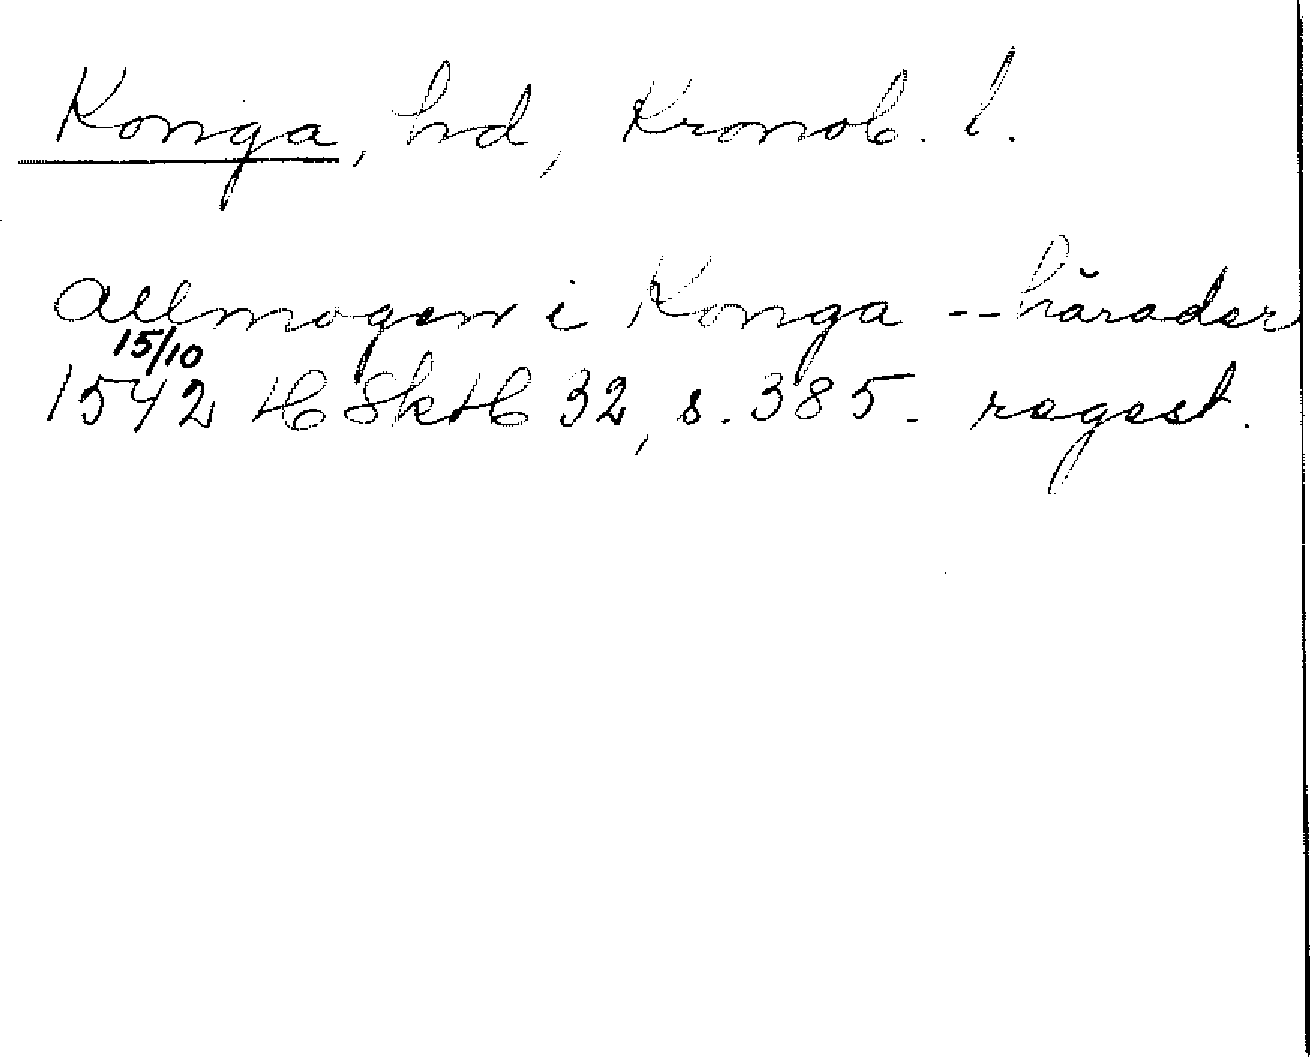 Konga, hd, Kronob. l.
Allmogen i Konga -- härader
15/10
1542 HSkH 32, s. 385. regest.